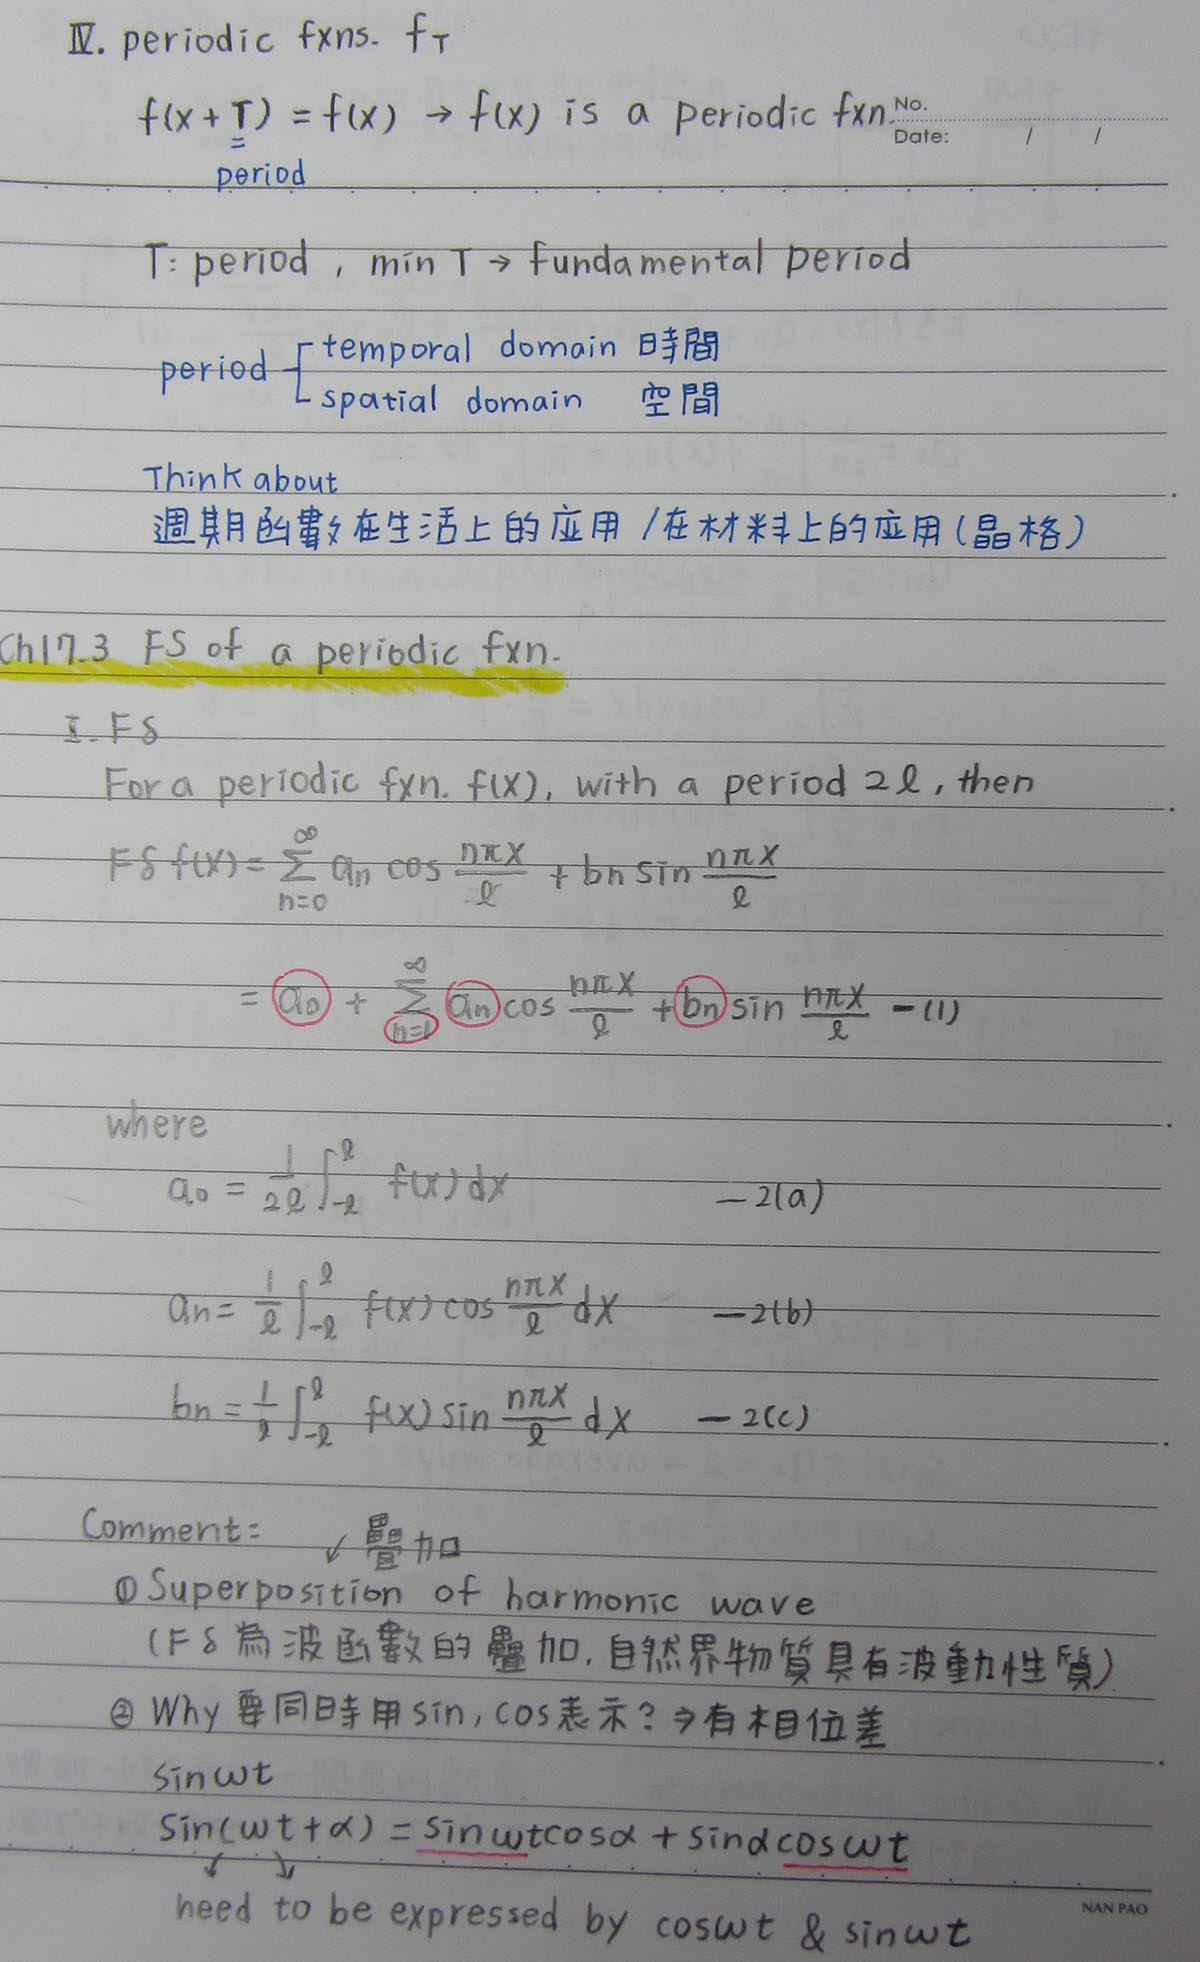 IV. periodic fxns. f_T
f(x+T) = f(x) → f(x) is a periodic fxn.
No.
Date: / /
period
T: period, min T → fundamental period
period
temporal domain 時間
spatial domain 空間
Think about
週期函數在生活上的应用/在材料上的应用(晶格)
Ch17.3 FS of a periodic fxn.
I. FS
For a periodic fxn. f(x), with a period 2ℓ, then
FS f(x) = ∑_{n=0}^{∞} a_n cos nπx/ℓ + b_n sin nπx/ℓ
= a_0 + ∑_{n=1}^{∞} a_n cos nπx/ℓ + b_n sin nπx/ℓ -(1)
where
a_0 = 1/2ℓ ∫_{-ℓ}^{ℓ} f(x)dx -2(a)
a_n = 1/ℓ ∫_{-ℓ}^{ℓ} f(x) cos nπx/ℓ dx -2(b)
b_n = 1/ℓ ∫_{-ℓ}^{ℓ} f(x) sin nπx/ℓ dx -2(c)
Comment: ↙ 疊加
① Superposition of harmonic wave
(FS 為波函數的疊加, 自然界物質具有波動性質)
② Why 要同時用 sin, cos表示? → 有相位差
sinωt
sin(ωt+α) = sinωtcosα + sinαcosωt
need to be expressed by cosωt & sinωt
NAN PAO